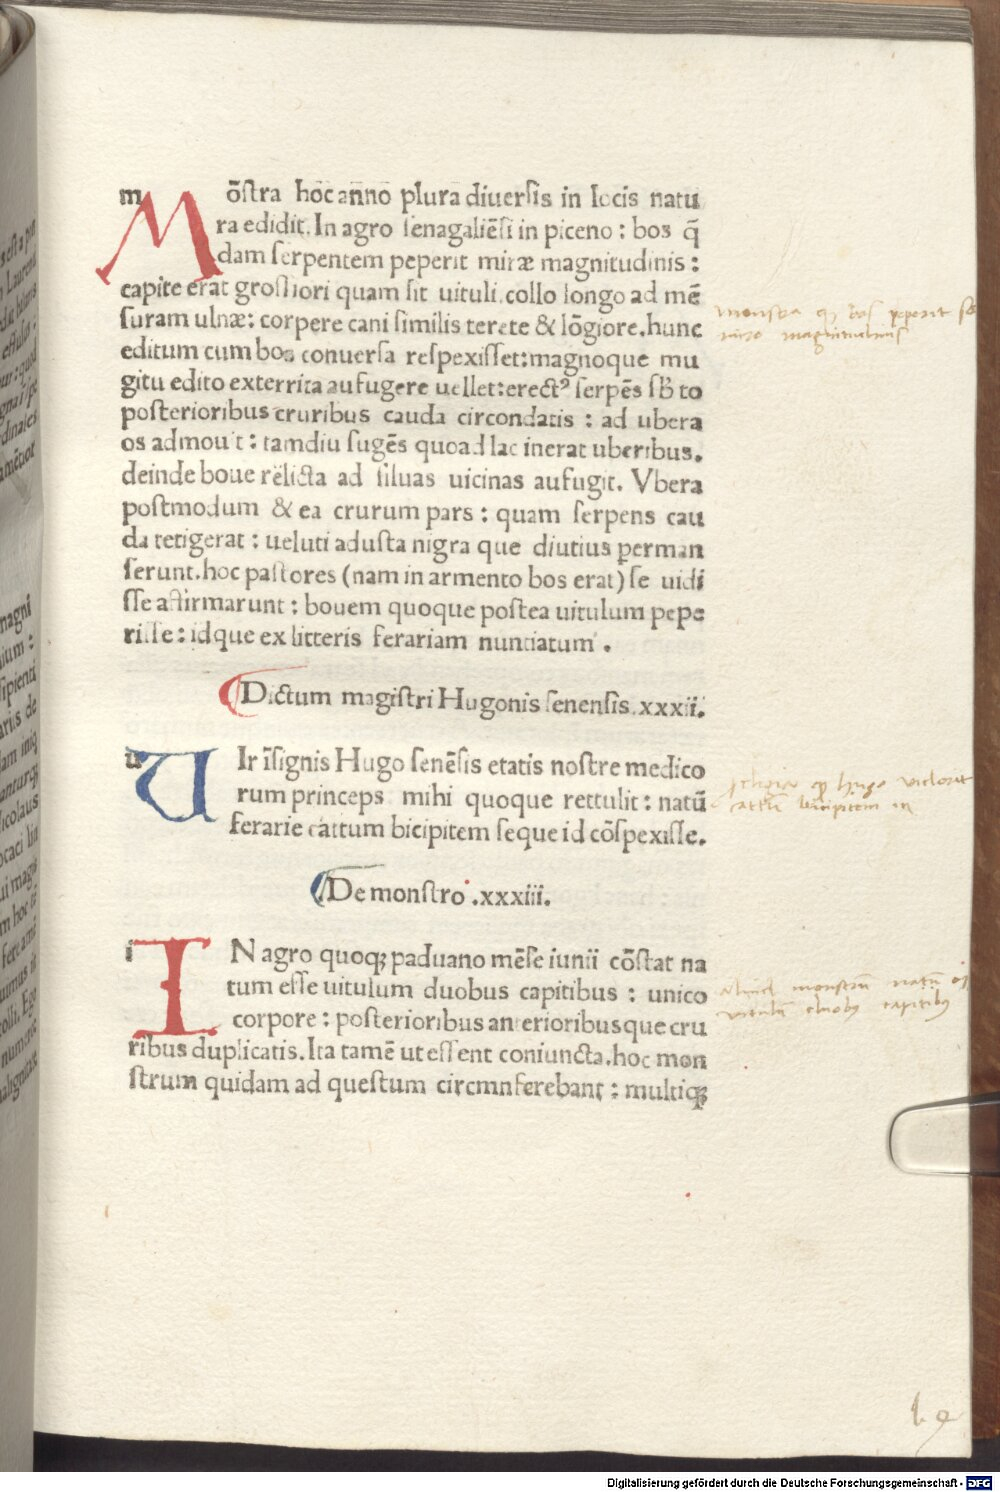 Mõstra hoc anno plura diuersis in locis natu
ra edidit. In agro senagaliẽsi in piceno : bos q̃
dam serpentem peperit miræ magnitudinis :
capite erat grossiori quam sit uituli. collo longo ad mẽ
suram ulnæ : corpere cani similis terete & lõgiore. hunc
editum cum bos conuersa respexisset : magnoque mu
gitu edito exterrita aufugere uellet : erectꝰ serpẽs sb̃to
posterioribus cruribus cauda circondatis : ad ubera
os admouit : tamdiu sugẽs quoad lac inerat uberibus.
deinde boue relicta ad siluas uicinas aufugit. Vbera
postmodum & ea crurum pars : quam serpens cau
da tetigerat : ueluti adusta nigra que diutius ꝑman
serunt. hoc pastores (nam in armento bos erat) se uidi
sse affirmarunt : bouem quoque postea uitulum pepe
risse : idque ex litteris ferariam nuntiatum .
Dictum magistri Hugonis senensis .xxxii.
UIr ĩsignis Hugo senẽsis etatis nostre medico
rum princeps mihi quoque rettulit : natũ
ferarie cattum bicipitem seque id cõspexisse.
De monstro .xxxiii.
IN agro quoqꝫ paduano mẽse iunii cõstat na
tum esse uitulum duobus capitibus : unico
corpore : posterioribus anterioribusque cru
ribus duplicatis. Ita tamẽ ut essent coniuncta. hoc mon
strum quidam ad questum circmnferebant : multiqꝫ
monstra bos peperit
miro magnitudinis
hugo
cattũ bicipitem in
Aliud monstrũ natũ
vitulũ duobꝰ capitibꝰ
Digitalisierung gefördert durch die Deutsche Forschungsgemeinschaft - DFG